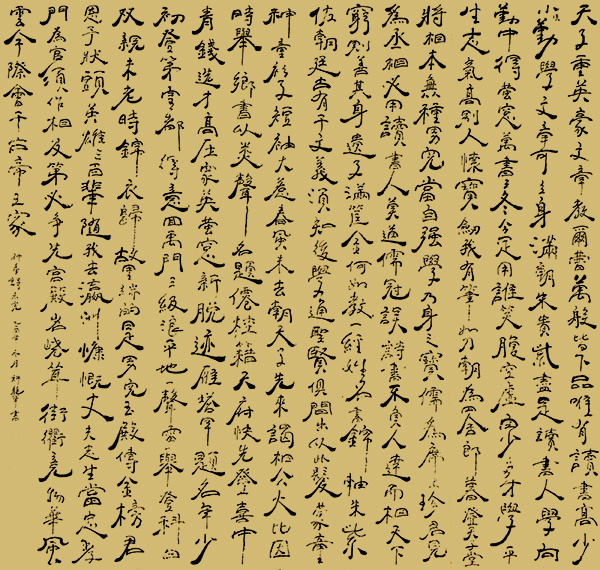 天子重英豪文章教爾曹萬般皆下品唯有讀書高少
小勤學文章可立身滿朝朱貴紫盡是讀書人學向
勤中得螢窓萬書三冬今足用誰笑腹空虛自少多才學平
生志氣高別人懷寶劍我有筆如刀朝為田舍郎暮登天子堂
將相本無種男兒當自强學乃身之寶儒為席上珍君見
為丞相必用讀書人莫道儒冠誤詩書不負人達而相天下
窮則善其身遺子滿籯金何如教一經姓名書錦軸朱紫
佐朝廷古有千文義須知後學通聖賢俱間出以此發蒙童
神童衫子短袖大惹春風未去朝天子先來謁相公大比因
時舉鄉書以聲名題僊桂籍天府快先登喜中
青錢選才高压眾英螢窓新脫迹雁塔早題名年少
初登第皇都得意回禹門三級浪平地一聲雷舉登科日
双親未老時錦衣歸故里端的是男兒玉殿傳金榜君
恩予狀頭英雄三百輩隨我去瀛洲慷慨丈夫志生當忠孝
門為官須作相及第必爭先宮殿岧嶢聳街衢竟物華風
雲今際會千古帝王家